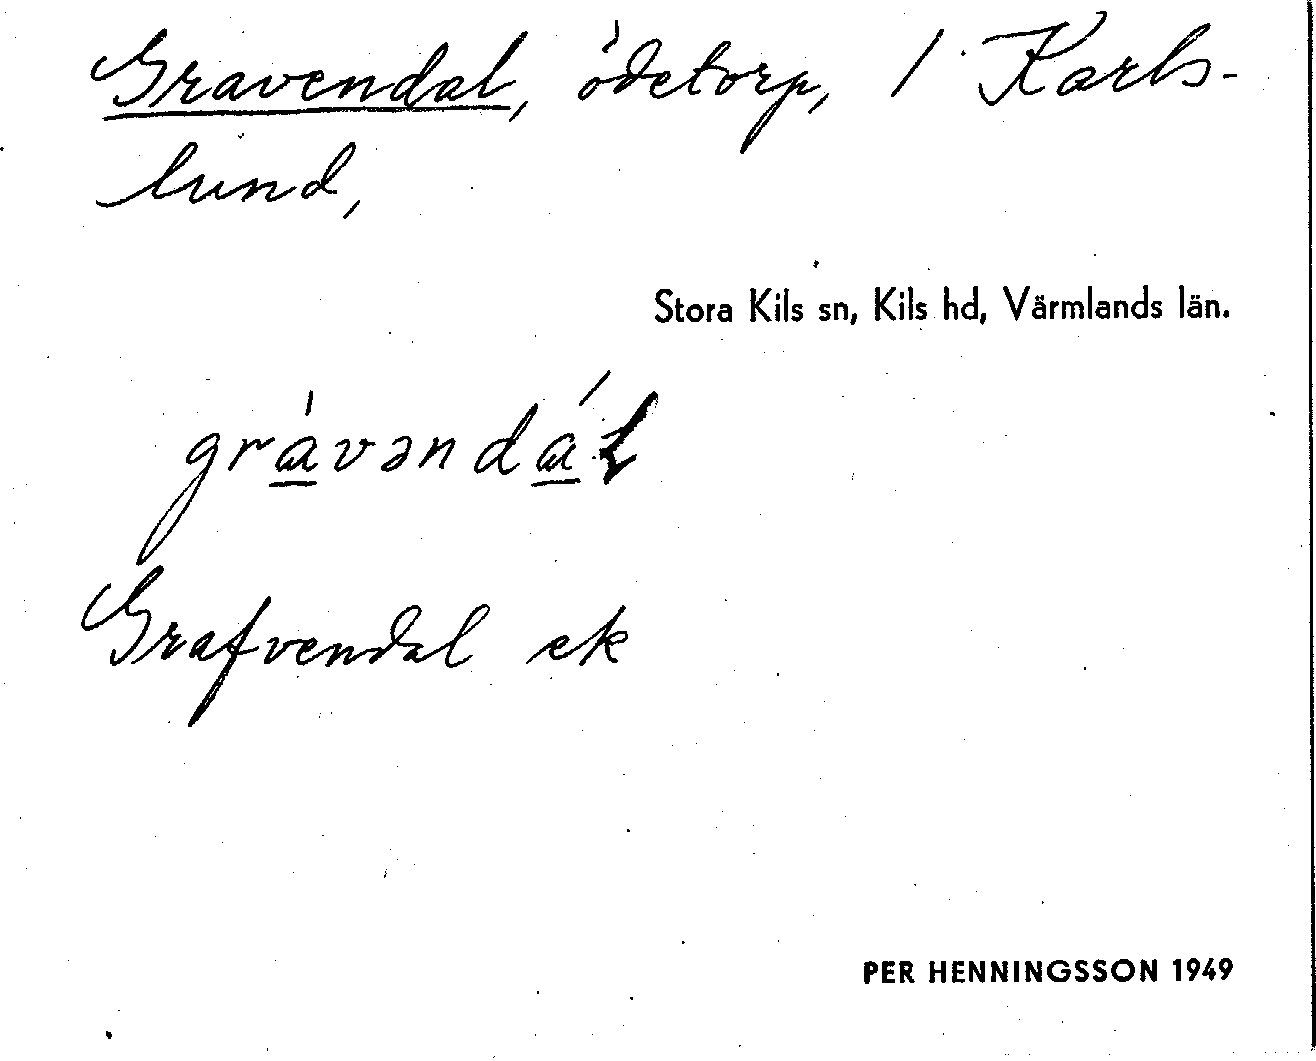 Gravendal, ödetorp, / Karls-
lund,
Stora Kils sn, Kils hd, Värmlands län.
grávəndál
Grafvendal ek
PER HENNINGSSON 1949